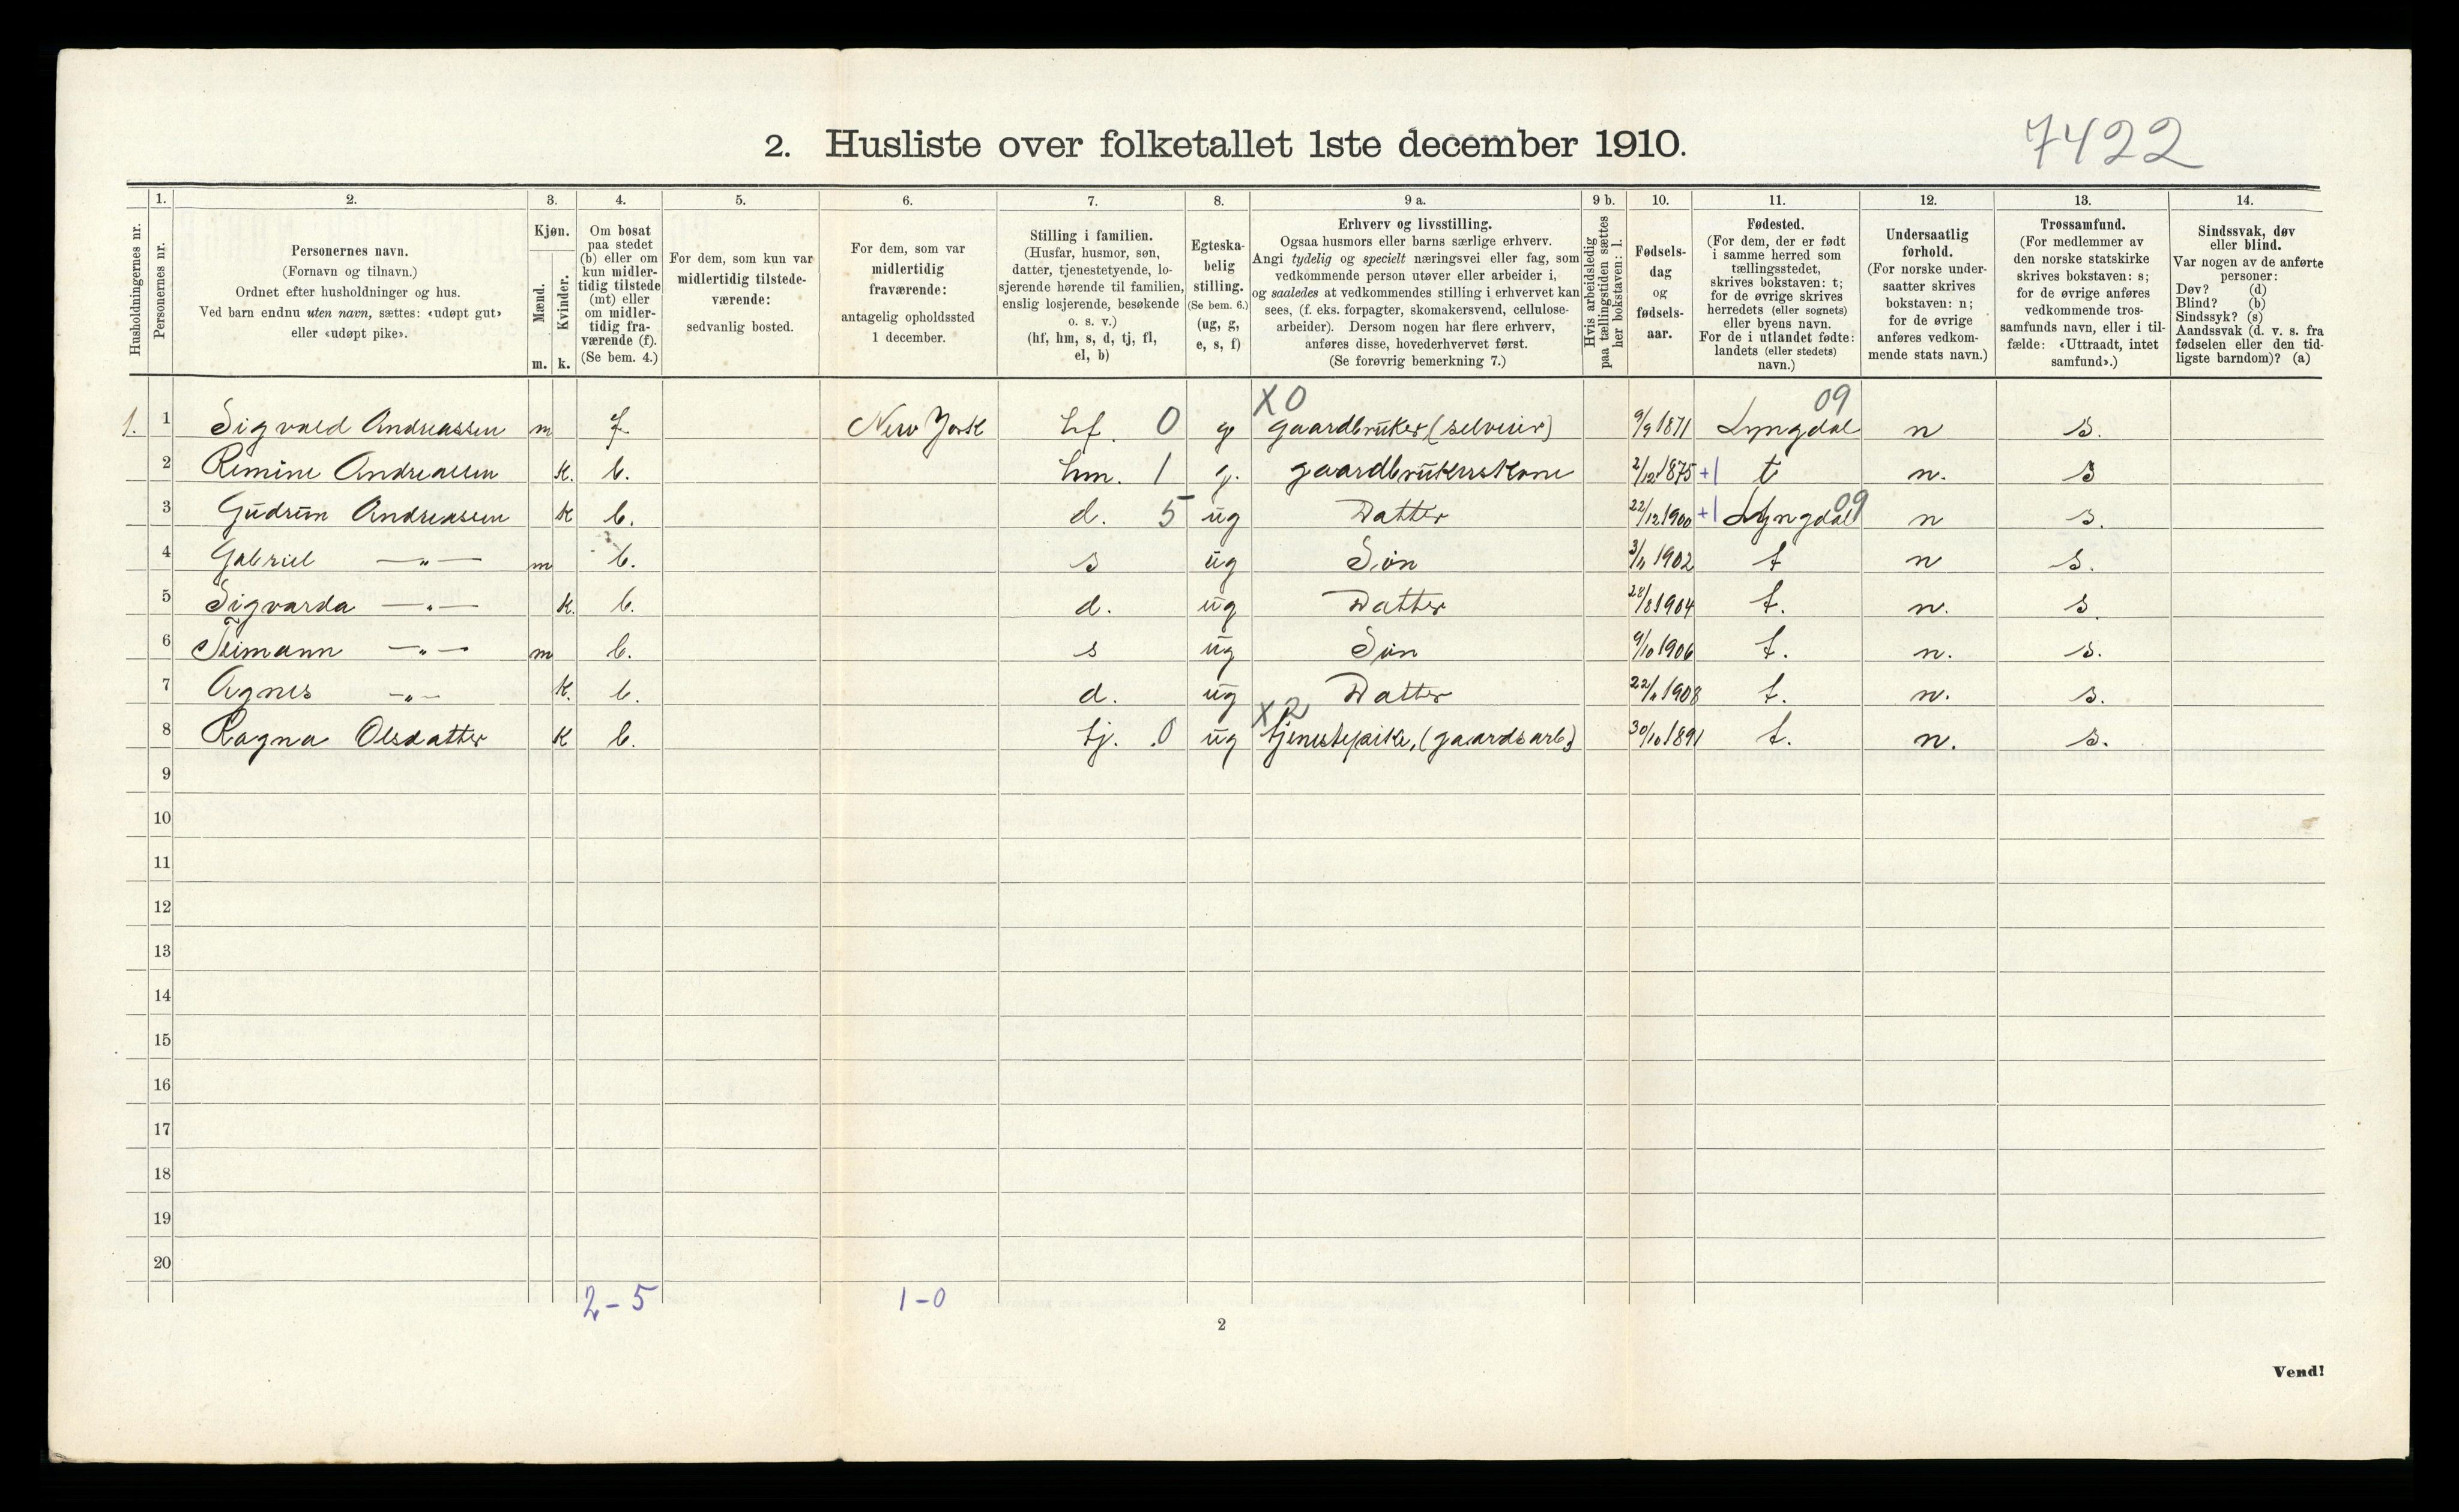 7422
2. Husliste over folketallet 1ste december 1910.
Husholdningernes nr.
1.
Personernes nr.
2.
Personernes navn.
(Fornavn og tilnavn.)
Ordnet efter husholdninger og hus.
Ved barn endnu uten navn, sættes: «udøpt gut»
eller «udøpt pike».
3.
Kjøn.
Mænd.
Kvinder.
m. k.
4.
Om bosat
paa stedet
(b) eller om
kun midler-
tidig tilstede
(mt) eller
om midler-
tidig fra-
værende (f).
(Se bem. 4.)
5.
For dem, som kun var
midlertidig tilstede-
værende:
sedvanlig bosted.
6.
For dem, som var
midlertidig
fraværende:
antagelig opholdssted
1 december.
7.
Stilling i familien.
(Husfar, husmor, søn,
datter, tjenestetyende, lo-
sjerende hørende til familien,
enslig losjerende, besøkende
o. s. v.)
(hf, hm, s, d, tj, fl,
el, b)
8.
Egteska-
belig
stilling.
(Se bem. 6.)
(ug, g,
e, s, f)
9 a.
Erhverv og livsstilling.
Ogsaa husmors eller barns særlige erhverv.
Angi tydelig og specielt næringsvei eller fag, som
vedkommende person utøver eller arbeider i,
og saaledes at vedkommendes stilling i erhvervet kan
sees, (f. eks. forpagter, skomakersvend, cellulose-
arbeider). Dersom nogen har flere erhverv,
anføres disse, hovederhvervet først.
(Se forøvrig bemerkning 7.)
9 b.
Hvis arbeidsledig
paa tællingstiden sættes
her bokstaven: l.
10.
Fødsels-
dag
og
fødsels-
aar.
11.
Fødested.
(For dem, der er født
i samme herred som
tællingsstedet,
skrives bokstaven: t;
for de øvrige skrives
herredets (eller sognets)
eller byens navn.
For de i utlandet fødte:
landets (eller stedets)
navn.)
12.
Undersaatlig
forhold.
(For norske under-
saatter skrives
bokstaven: n;
for de øvrige
anføres vedkom-
mende stats navn.)
13.
Trossamfund.
(For medlemmer av
den norske statskirke
skrives bokstaven: s;
for de øvrige anføres
vedkommende tros-
samfunds navn, eller i til-
fælde: «Uttraadt, intet
samfund».)
14.
Sindssvak, døv
eller blind.
Var nogen av de anførte
personer:
Døv? (d)
Blind? (b)
Sindssyk? (s)
Aandssvak (d. v. s. fra
fødselen eller den tid-
ligste barndom)? (a)
X0 09
1. 1 Sigvald Andreassen m f. New York hf. 0 g gaardbruker (selveier) 9/9 1871 Lyngdal n s.
2 Remine Andreassen K. b. hm. 1 g. gaardbrukerskone 2/12 1875 +1 t n. s
3 Gudrun Andreassen K b. d. 5 ug Datter 22/12 1900 +1 Lyngdal 09 n s.
4 Gabriel —„— m b. s ug Søn 1902 t n s.
5 Sigvarda —„— K. b. d. ug Datter 28/8 1904 t. n. s.
6 —„— m b. s ug Søn 9/10 1906 t. n. s.
7 Agnes —„— K. b. d. ug Datter 1908 t. n. s.
X2
8 Ragna Olsdatter K b. tj. .0 ug tjenestepike, (gaardsarb.) 30/10 1891 t. n. s.
9
10
11
12
13
14
15
16
17
18
19
20
2-5 1-0
2
Vend!